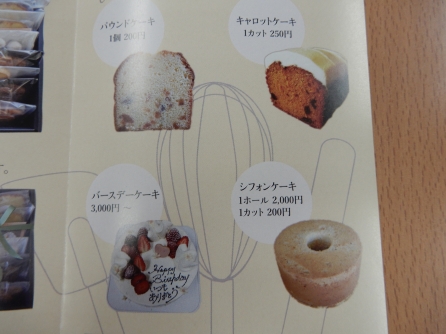 パウンドケーキ
1個 200円
キャロットケーキ
1カット 250円
バースデーケーキ
3,000円〜
シフォンケーキ
1ホール 2,000円
1カット 200円
Happy
Birthday
いつも
ありがとう
す。